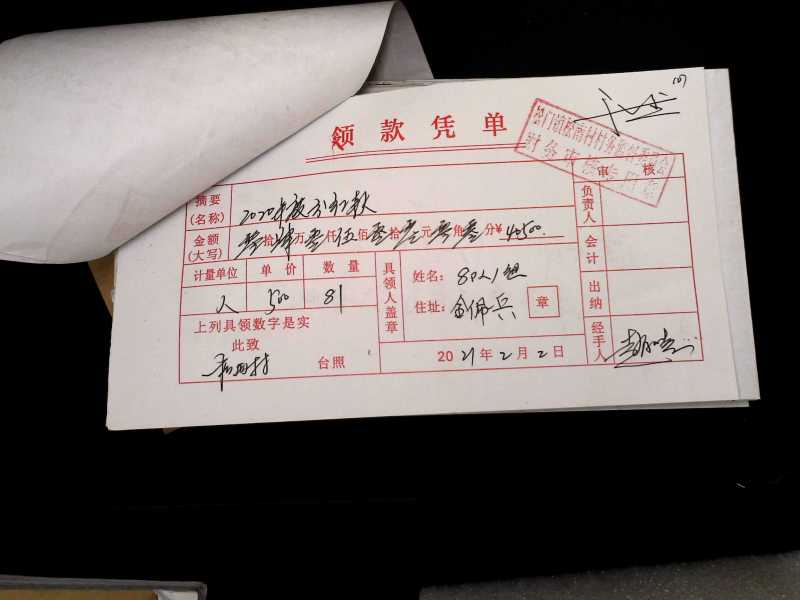 (7)
领款凭单
松门镇松南村村务监督委员会
财务审核专用章
摘要(名称) 2020年度分红款
审核
金额(大写) 零拾肆万零仟伍佰零拾零元零角零分¥ 40500.
负责人
计量单位 单价 数量
人 500 81
具领人盖章
姓名: 8队1组
住址: 金佩兵 章
会计
出纳
上列具领数字是实
此致
松南村 台照
2021年2月2日
经手人